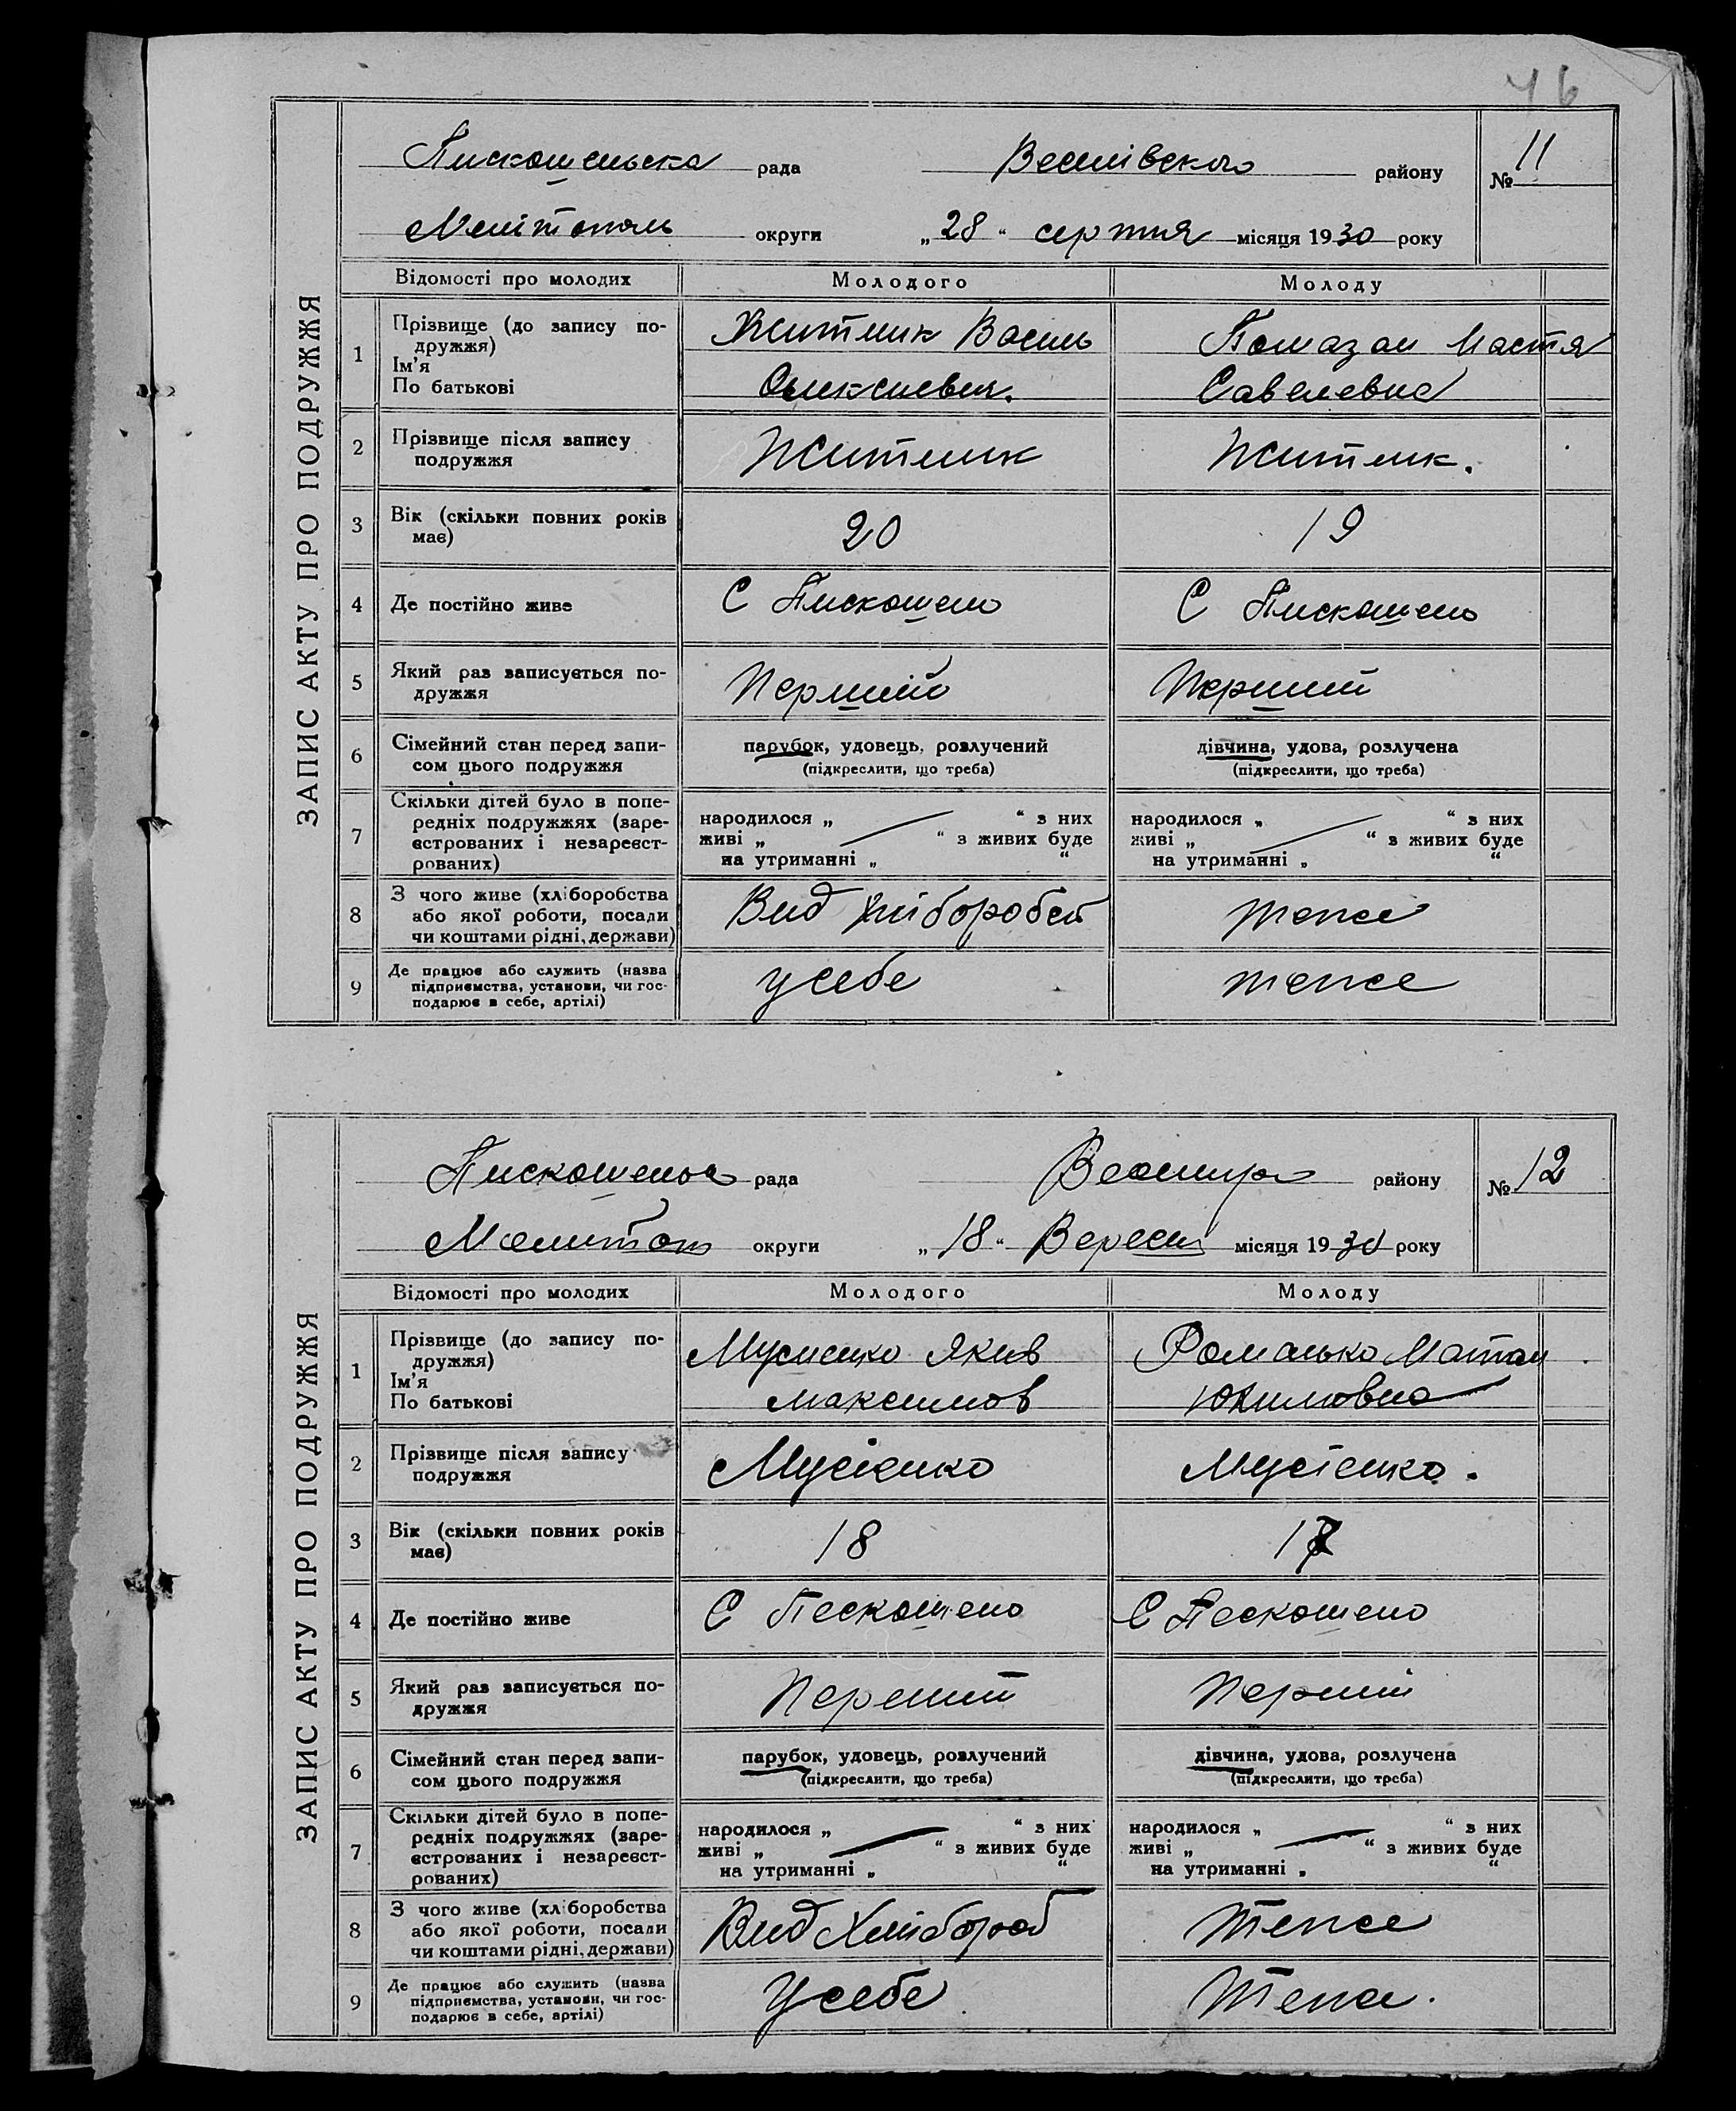 46
ЗАПИС АКТУ ПРО ПОДРУЖЖЯ
Пискошенська рада Веселівского району № 11
Мелітополь округи „28“ серпня місяця 1930 року
Відомості про молодих Молодого Молоду
1 Прізвище (до запису по-
дружжя)
Ім'я
По батькові
Житник Василь
Олексиевич.
Помазан Настя
Савелевна
2 Прізвище після запису
подружжя
Житник Житник.
3 Вік (скільки повних років
має)
20 19
4 Де постійно живе С Пискошено С Пискошено
5 Який раз записується по-
дружжя
Перший Перший
6 Сімейний стан перед запи-
сом цього подружжя
парубок, удовець, розлучений
(підкреслити, що треба)
дівчина, удова, розлучена
(підкреслити, що треба)
7 Скільки дітей було в попе-
редніх подружжях (заре-
єстрованих і незареєст-
рованих)
народилося „ “ з них
живі „ “ з живих буде
на утриманні „ “
народилося „ “ з них
живі „ “ з живих буде
на утриманні „ “
8 З чого живе (хліборобства
або якої роботи, посади
чи коштами рідні, держави)
Вид тоже
9 Де працює або служить (назва
підприємства, установи, чи гос-
подарює в себе, артілі)
усебе тоже
ЗАПИС АКТУ ПРО ПОДРУЖЖЯ
рада району № 12
округи „18“ місяця 1930 року
Відомості про молодих Молодого Молоду
1 Прізвище (до запису по-
дружжя)
Ім'я
По батькові
Мусиенко Якив
Максимов
Романько
Юхимовна
2 Прізвище після запису
подружжя
Мусіенко Мусіенко.
3 Вік (скільки повних років
має)
18 17
4 Де постійно живе С Пескошено С Пескошено
5 Який раз записується по-
дружжя
Перший Перший
6 Сімейний стан перед запи-
сом цього подружжя
парубок, удовець, розлучений
(підкреслити, що треба)
дівчина, удова, розлучена
(підкреслити, що треба)
7 Скільки дітей було в попе-
редніх подружжях (заре-
єстрованих і незареєст-
рованих)
народилося „ “ з них
живі „ “ з живих буде
на утриманні „ “
народилося „ “ з них
живі „ “ з живих буде
на утриманні „ “
8 З чого живе (хліборобства
або якої роботи, посади
чи коштами рідні, держави)
Вид Хлібороб Теже
9 Де працює або служить (назва
підприємства, установи, чи гос-
подарює в себе, артілі)
Усебе Теже.